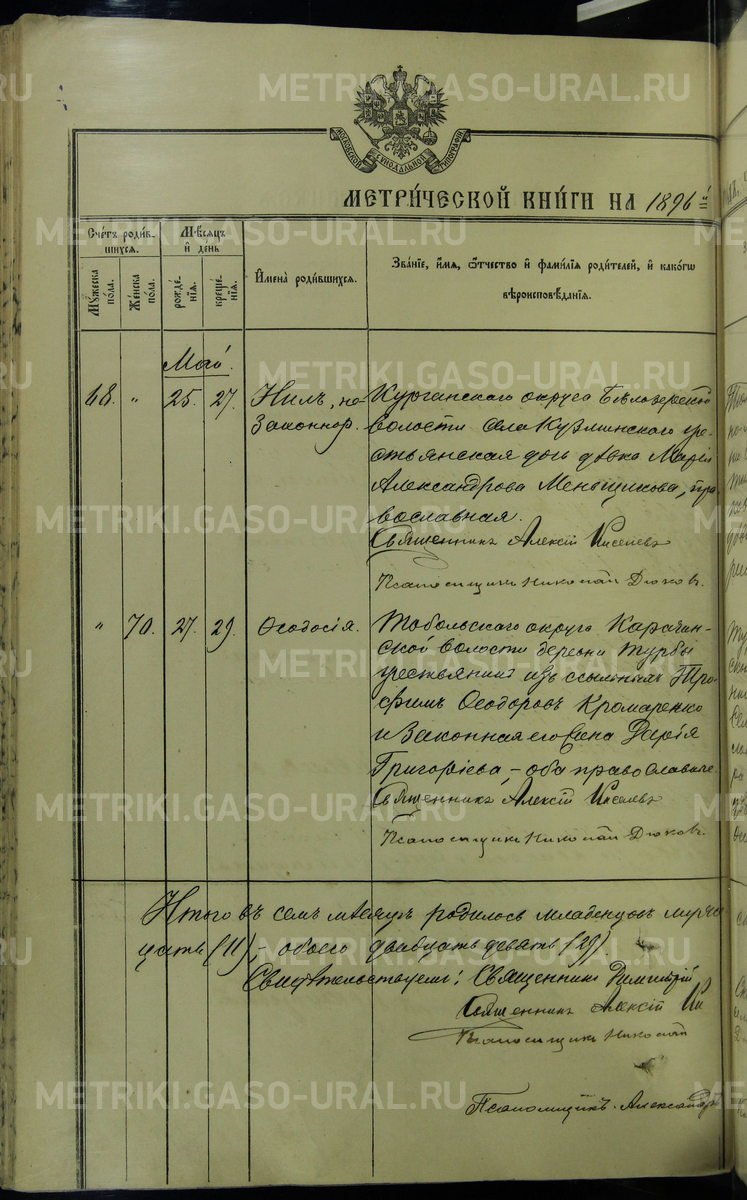 МОСКОВСКОЙ СУНОДАЛЬНОЙ ТИПОГРАФІИ
МЕТРИ́ЧЕСКОЙ КНИ́ГИ НА 1896
Сче́тъ роди́вшихся.
Мꙋ́жеска по́ла.
Же́нска по́ла.
Мѣ́сяцъ и де́нь
рожде́нїѧ.
креще́нїѧ.
Имена̀ роди́вшихся.
Зва́нїе, и́мѧ, ѻ҆́тчество и҆ фами́лїѧ роди́телей, и҆ како́гѡ
вѣроисповѣ́данїѧ.
Май.
68. " 25. 27. Нилъ, не-
законнор.
Курганскаго округа Бѣлозерской
волости села Кузминскаго кре-
стьянская дочь дѣвка Марія
Александрова Меньщикова, пра-
вославная.
Священникъ Алексій Киселевъ
Псаломщикъ Николай Дюковъ.
" 70. 27. 29. Ѳеодосія.
Тобольскаго округа Карачин-
ской волости деревни Турбы
крестьянинъ изъ ссыльныхъ Тро-
фимъ Ѳеодоровъ Кромаренко
и законная его жена Дарія
Григоріева, - оба православные.
Священникъ Алексій Киселевъ
Псаломщикъ Николай Дюковъ.
Итого въ семъ мѣсяцѣ родилось младенцовъ мужес
цать (11), - обоего двадцать девять (29).
Свидѣтельствуемъ: Священникъ Димитрій
Священникъ Алексій Ки
Псаломщикъ Николай
Псаломщикъ Александръ
METRIKI.GASO-URAL.RU